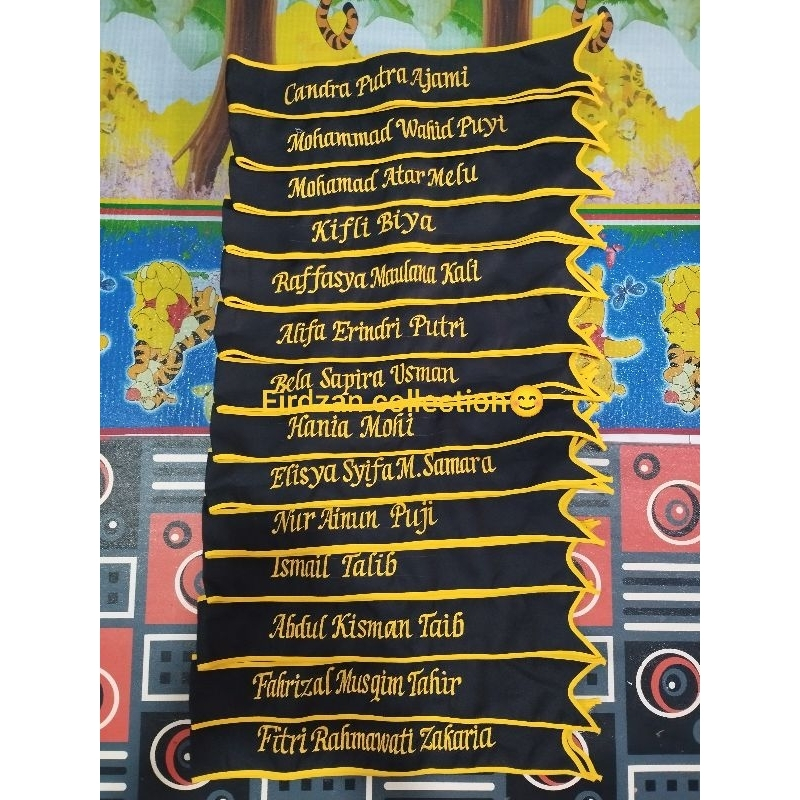 Candra Putra Ajami
Mohammad Wahid Puyi
Mohamad Atar Melu
Kifli Biya
Raffasya Maulana Kali
Alifa Erindri Putri
Bela Sapira Usman
Firdzan collection😊
Hania Mohi
Elisya Syifa M. Samara
Nur Ainun Puji
Ismail Talib
Abdul Kisman Taib
Fahrizal Musqim Tahir
Fitri Rahmawati Zakaria